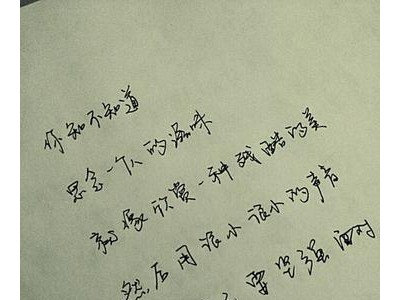 你知不知道
思念一个人的滋味
就像欣赏一种残酷的美
然后用很小很小的声音
要坚强面对